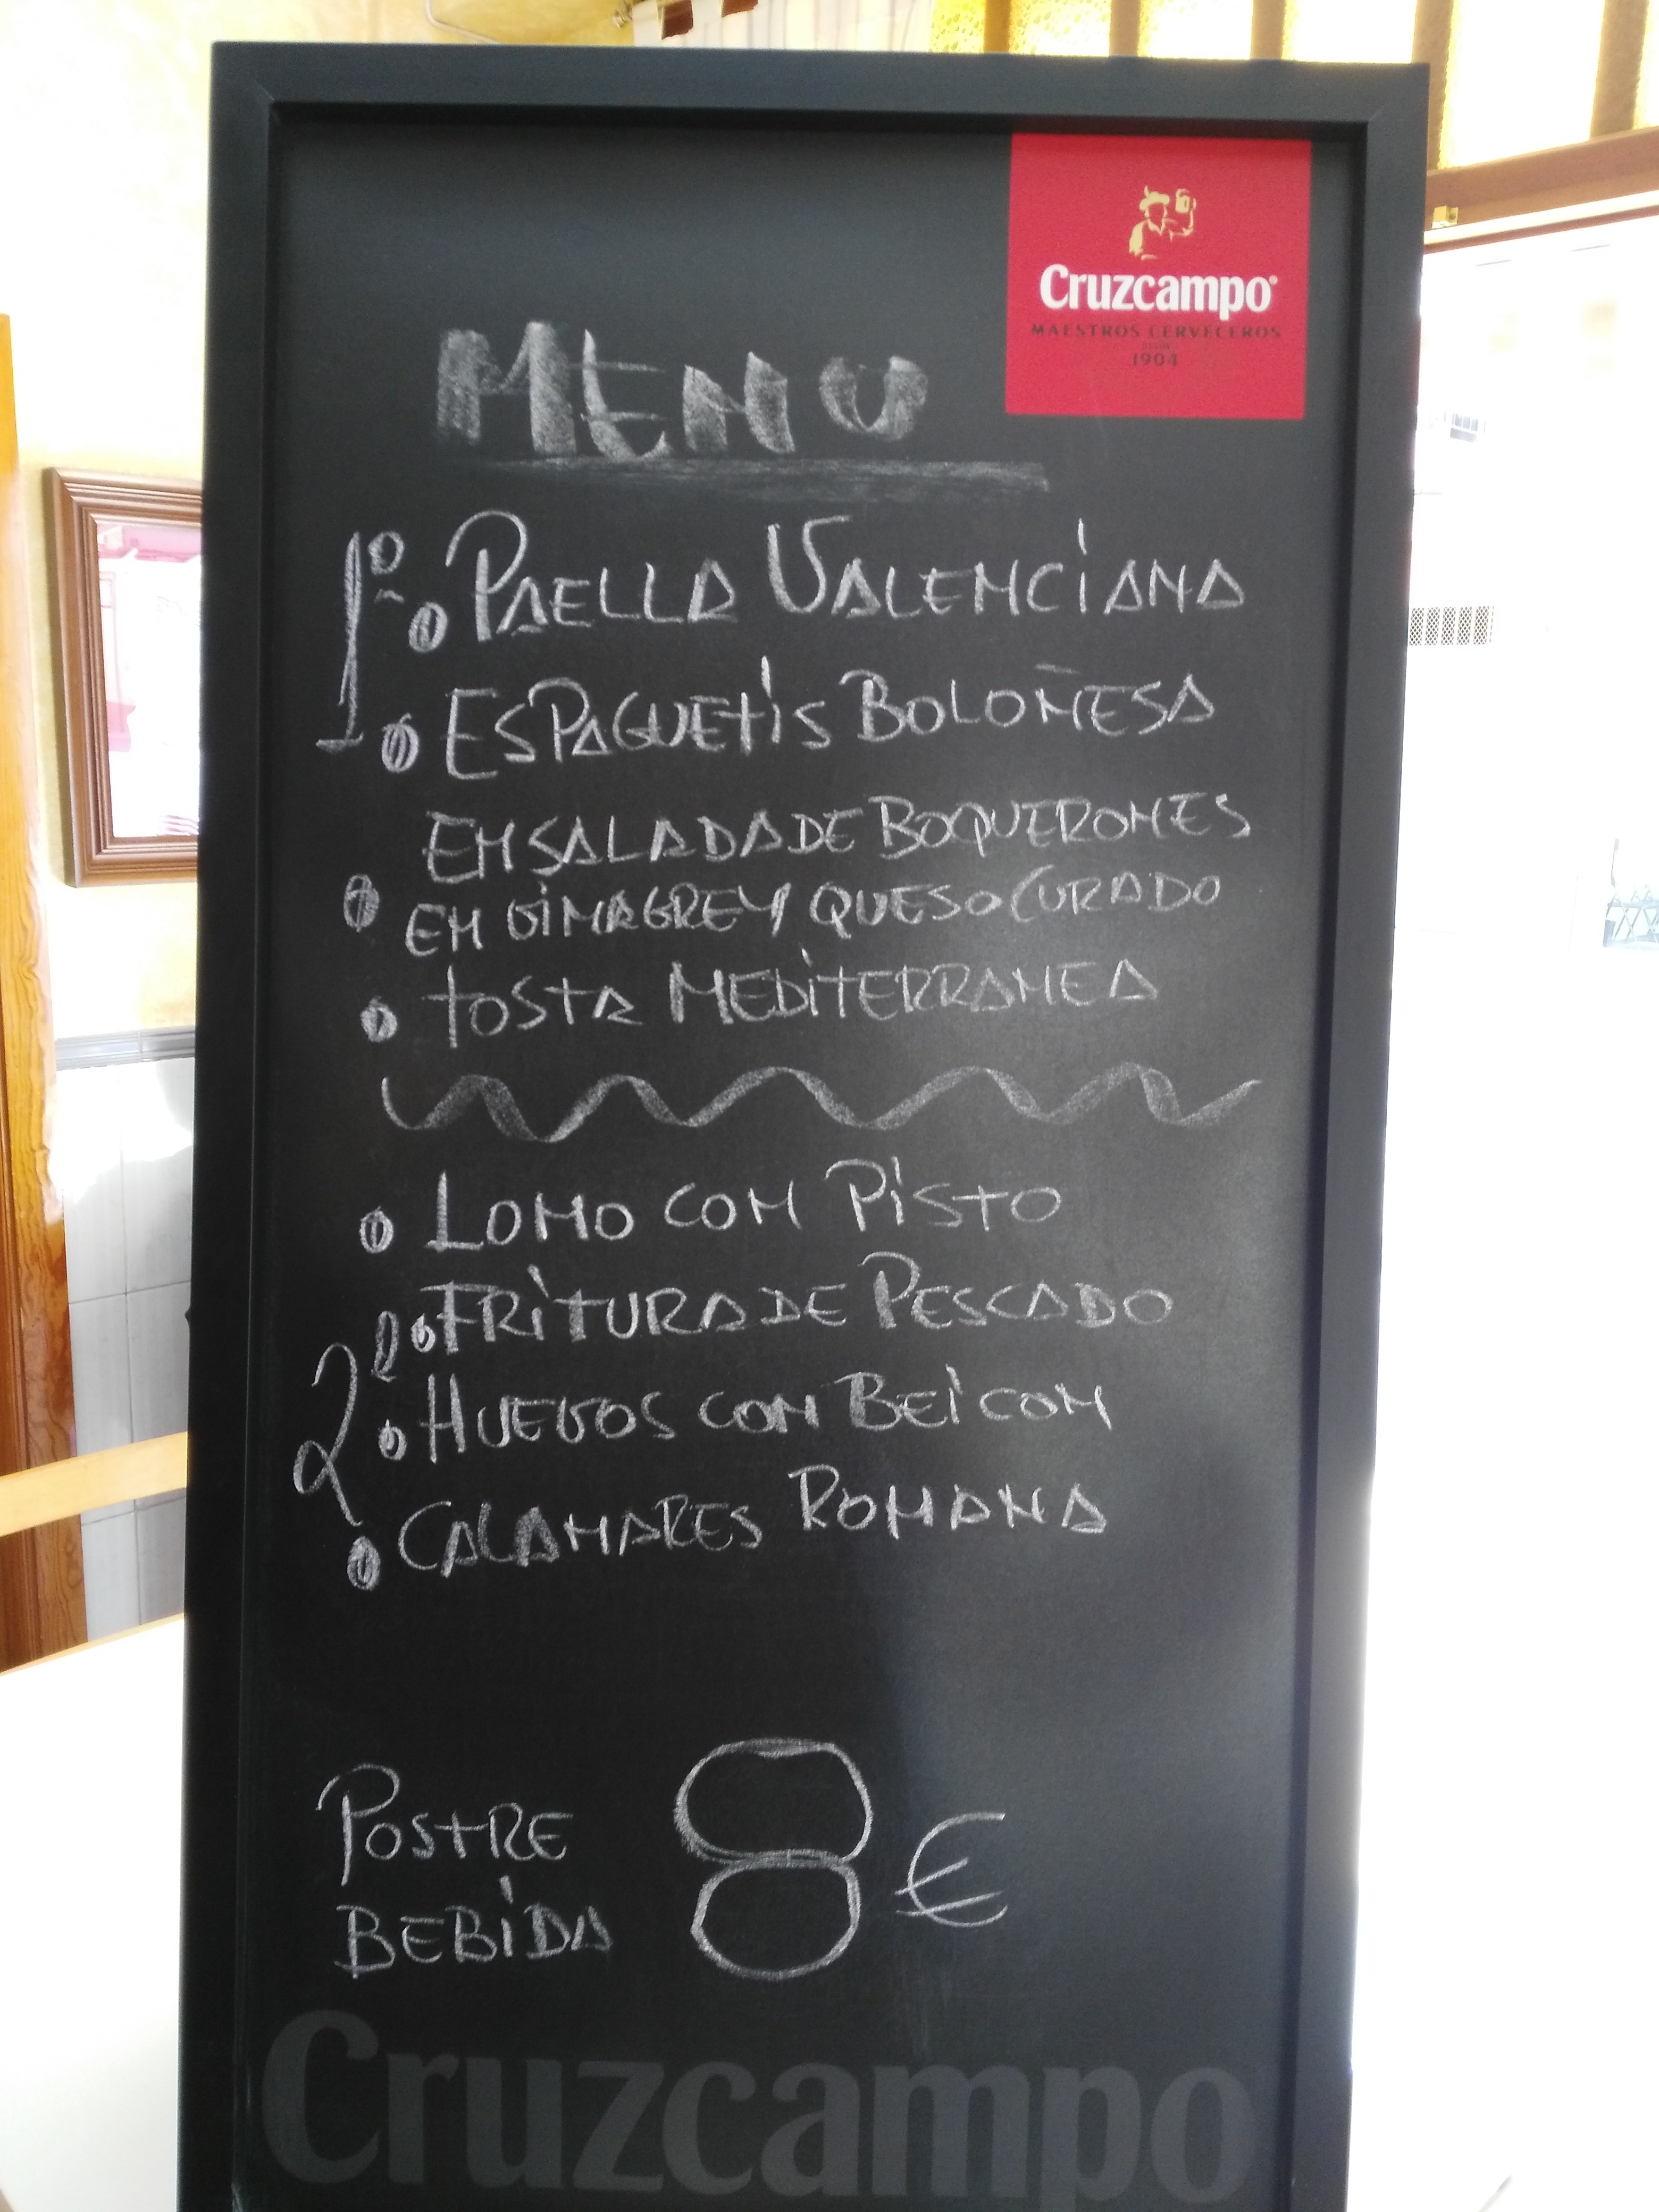 Cruzcampo
MAESTROS CERVECEROS
DESDE
1904
MENU
1º
PAELLA VALENCIANA
ESPAGUETIS BOLOÑESA
ENSALADA DE BOQUERONES
EN VINAGRE Y QUESO CURADO
TOSTA MEDITERRANEA
LOMO CON PISTO
2º
FRITURA DE PESCADO
HUEVOS CON BEICON
CALAMARES ROMANA
POSTRE
BEBIDA
8€
Cruzcampo